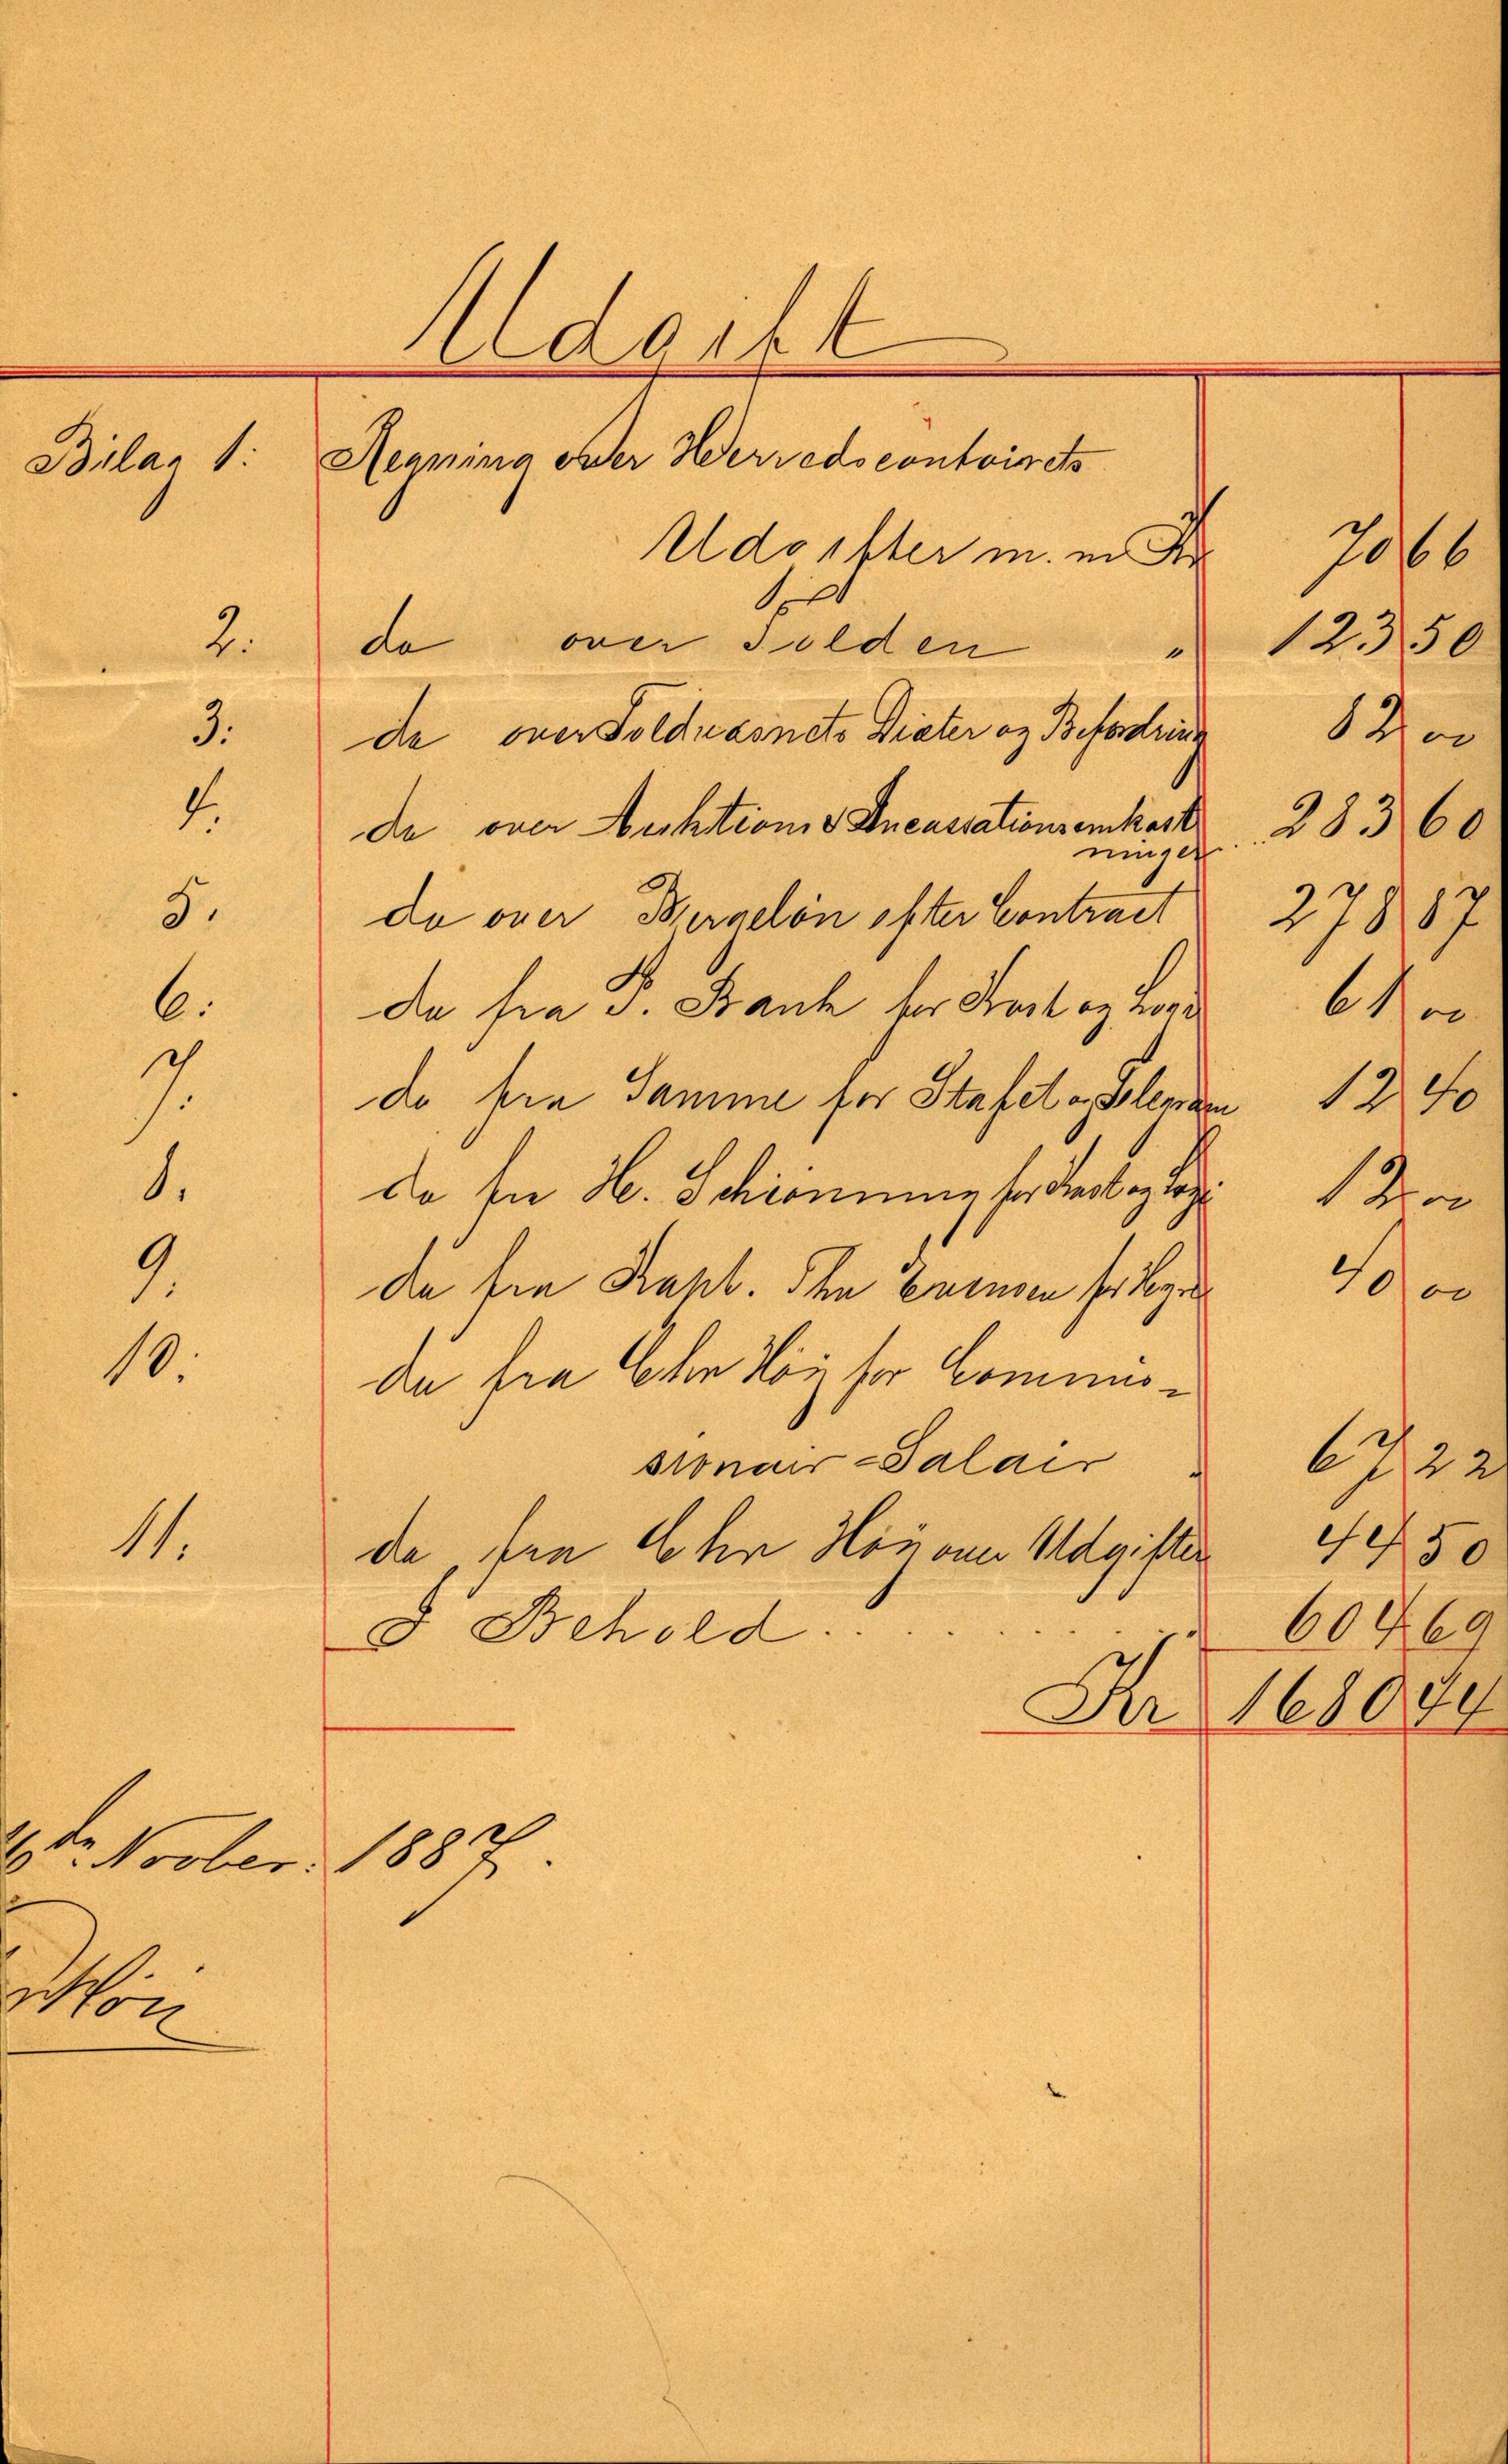 Udgift
Bilag 1: Regning over Herredscontoirets
Udgifter m. m Kr 70 66
2. do over Tolden " 123 50
3. do over Toldvæsnets Diæter og Befordring 82 00
4. do over Auktions & Incassationsomkost 283 60
ninger
5. do over Bergelön efter Contract 278 87
6. do fra P. Bank for Kost og Logi 61 00
7. do fra Samme for Stafet og Telegram 12 40
8. do fra H. Schiönning for Kost og Logi 12 00
9. do fra Kapt. Evensen for 40 00
10. do fra Chr Höy for Commis-
sionair-Salair " 67 22
11. do fra Chr Höy over Udgifter 44 50
I Behold ........ 604 69
Kr 1680 44
de Novber. 1887.
Höy